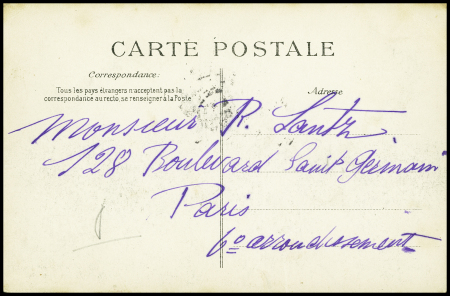 CARTE POSTALE
Correspondance:
Adresse
Tous les pays étrangers n'acceptent pas la
correspondance au recto, se renseigner à la Poste
Monsieur R. Lantz
128 Boulevard Saint Germain
Paris
6e arrondissement